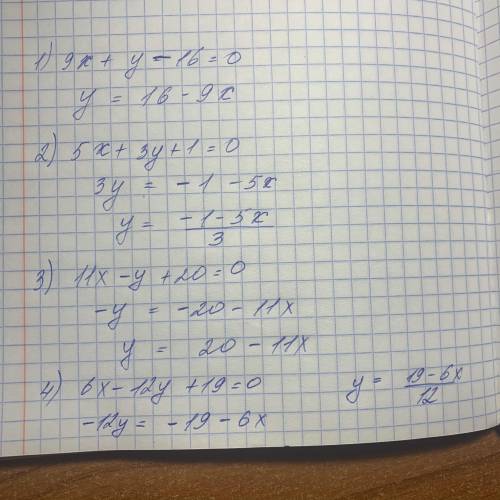 1) 9x + y - 16 = 0
y = 16 - 9x
2) 5x + 3y + 1 = 0
3y = -1 - 5x
y = (-1 - 5x)/3
3) 11x - y + 20 = 0
-y = -20 - 11x
y = 20 - 11x
4) 6x - 12y + 19 = 0
-12y = -19 - 6x
y = (19 - 6x)/12